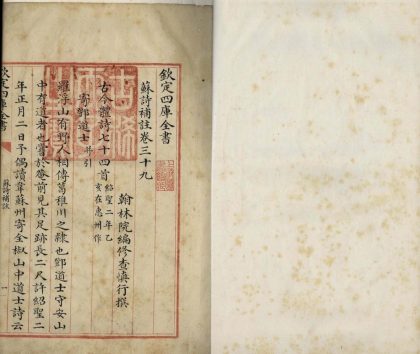 欽定四庫全書
蘇詩補註卷三十九
翰林院編修查慎行撰
古今體詩七十四首
紹聖二年乙
亥在惠州作
寄鄧道士并引
羅浮山有野人相傳葛稚川之隸也鄧道士守安山
中有道者也嘗於庵前見其足跡長二尺許紹聖二
年正月二日予偶讀韋蘇州寄全椒山中道士詩云
欽定四庫全書
蘇詩補註
一